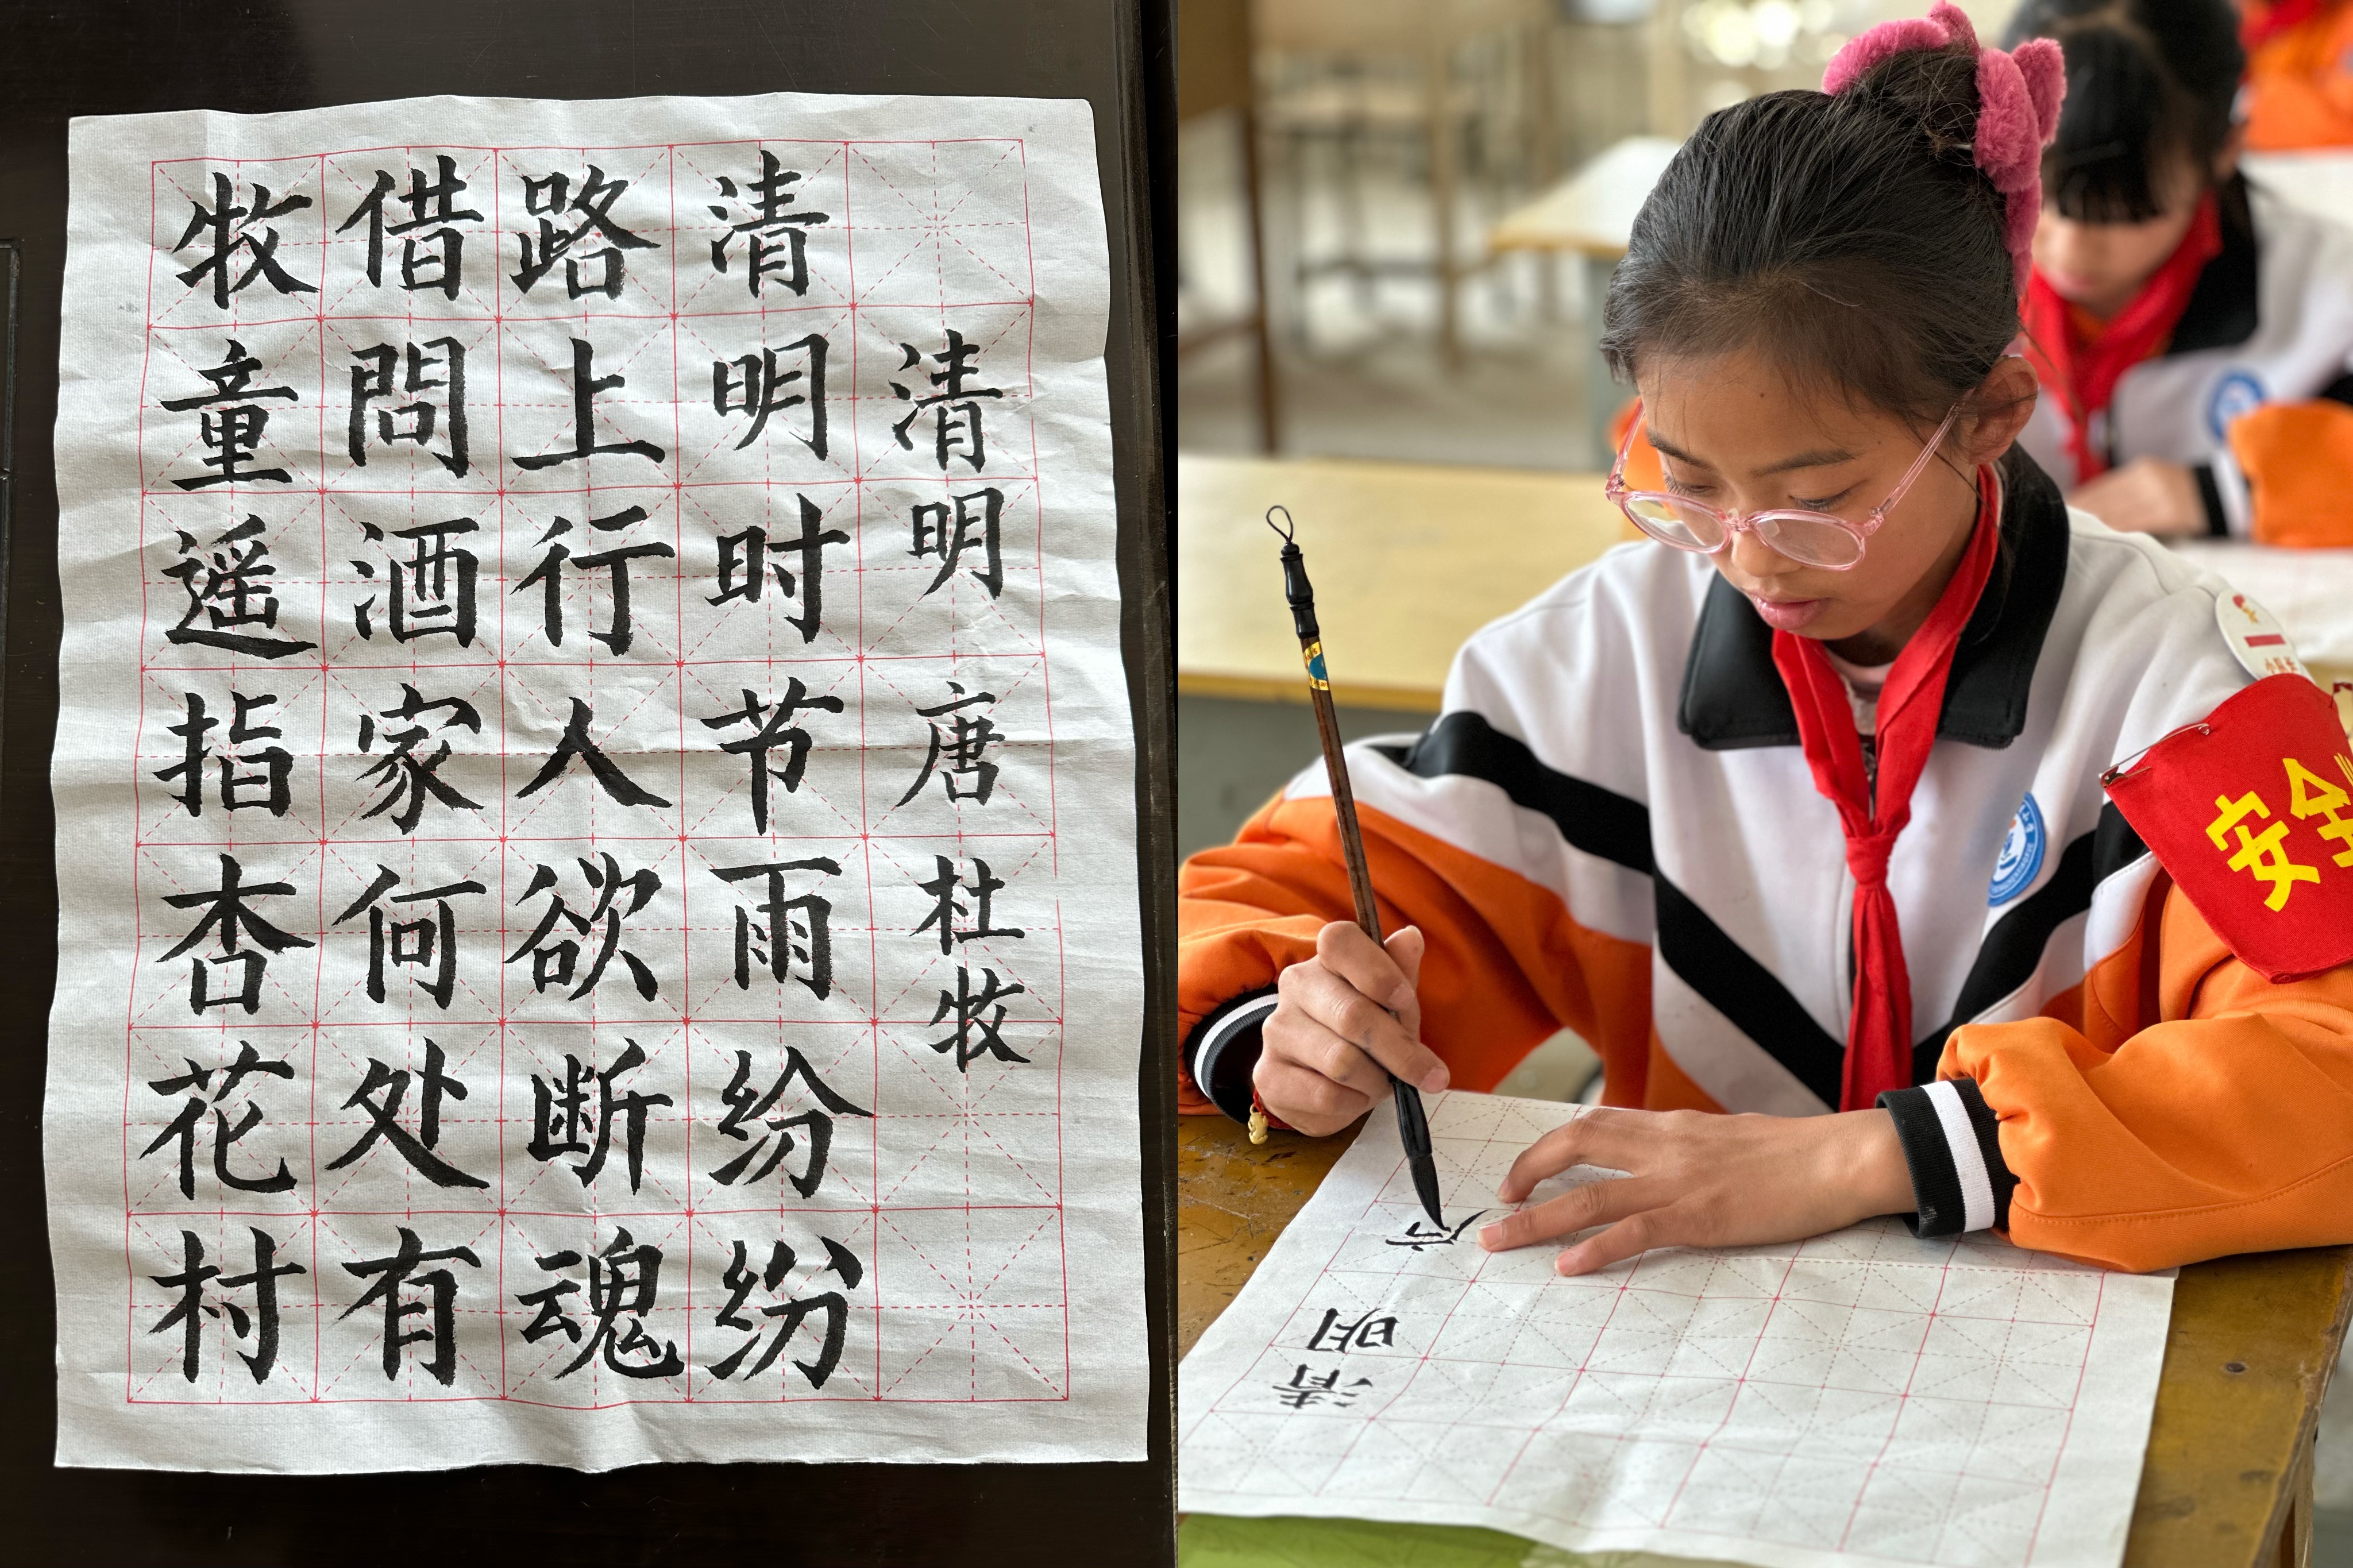 清明 唐 杜牧
清明时节雨纷纷
路上行人欲断魂
借問酒家何处有
牧童遥指杏花村
安全
清明